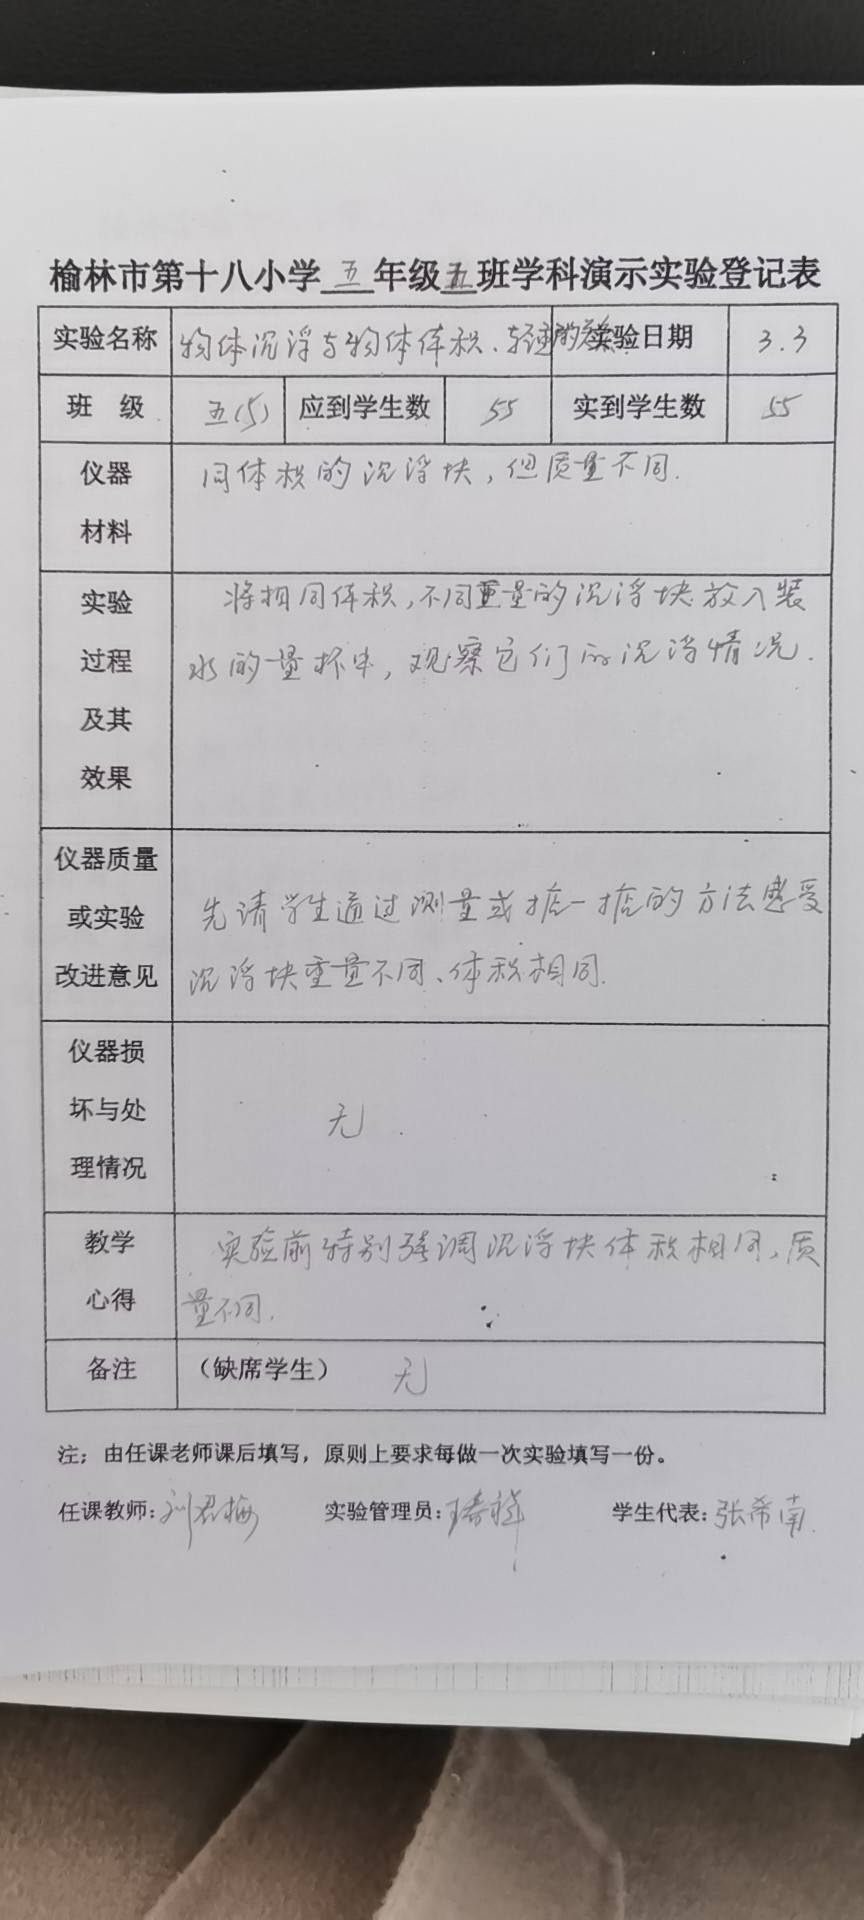 榆林市第十八小学五年级五班学科演示实验登记表
实验名称 物体沉浮与物体体积、轻重的 实验日期 3.3
班 级 五(5) 应到学生数 55 实到学生数 55
仪器 同体积的沉浮块,但质量不同.
材料
实验 将相同体积,不同重量的沉浮块放入装
过程 水的量杯中,观察它们的沉浮情况.
及其
效果
仪器质量
或实验 先请学生通过测量或掂一掂的方法感受
改进意见 沉浮块重量不同、体积相同.
仪器损
坏与处 无.
理情况
教学 实验前特别强调沉浮块体积相同,质
心得 量不同.
备注 (缺席学生) 无
注;由任课老师课后填写,原则上要求每做一次实验填写一份。
任课教师:刘君梅 实验管理员: 学生代表:张希南.